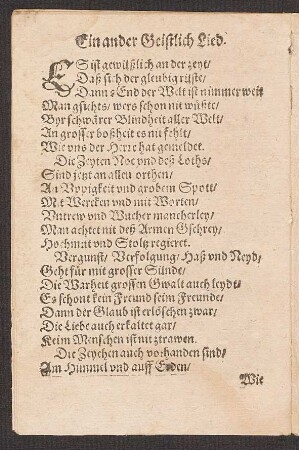 Ein ander Geistlich Lied.
ES ist gewüßlich an der zeyt/
Daß sich der gleubig rüste/
Dann s End der Welt ist nimmer weit
Man gsichts/ wers schon nit wüste/
Byr schwärer Blindheit aller Welt/
An grosser boßheit es nit fehlt/
Wie vns der Herre hat gemeldet.
Die Zeyten Noe vnd deß Loths/
Sind jetzt an allen orthen/
An Vppigkeit vnd grobem Spott/
Mit Wercken vnd mit Worten/
Vntrew vnd Wucher mancherley/
Man achtet nit deß Armen Gschrey/
Hochmut vnd Stoltz regieret.
Vergunst/ Verfolgung/ Haß vnd Neyd/
Geht für mit grosser Sünde/
Die Warheit grossen Gwalt auch leydt/
Es schont kein Freund seim Freunde/
Dann der Glaub ist erlöschen zwar/
Die Liebe auch erkaltet gar/
Keim Menschen ist nit ztrawen.
Die Zeychen auch vorhanden sind/
Am Himmel vnd auff Erden/
Wie